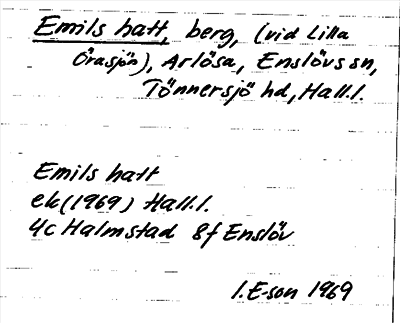 Emils hatt, berg, (vid Lilla
Örasjön), Arlösa, Enslövs sn,
Tönnersjö hd, Hall.l.
Emils hatt
ek (1969) Hall.l.
4c Halmstad 8f Enslöv
I.E-son 1969